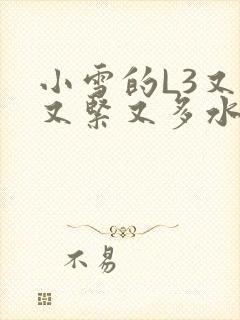 小雪的L3又
又紧又多水
不易